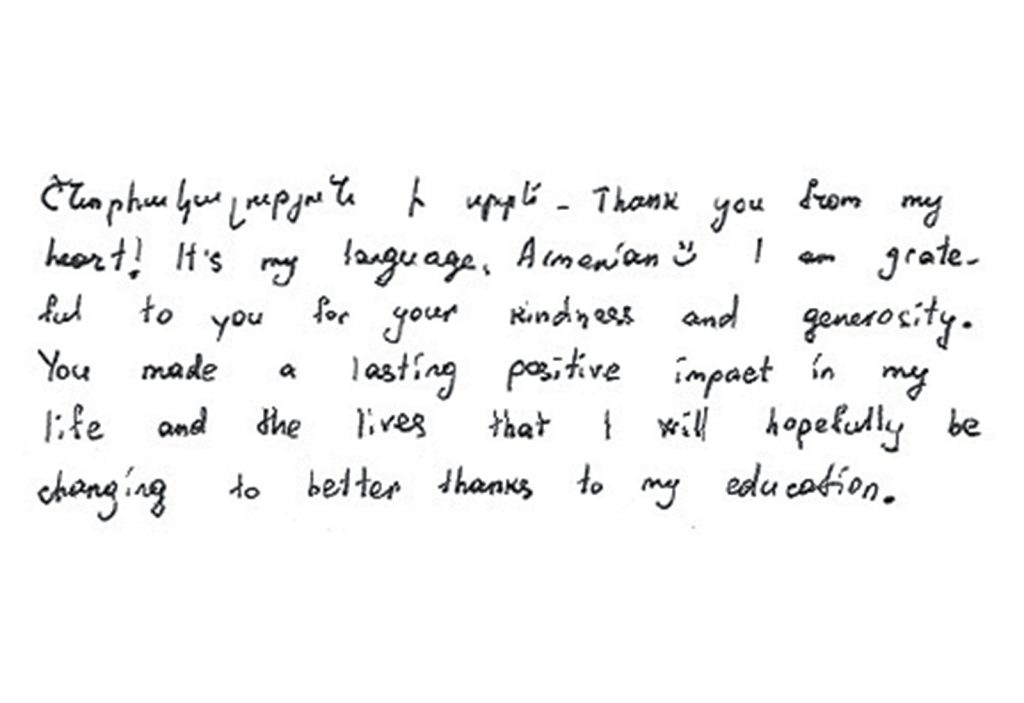 Շնորհակալություն ի սրտե - Thank you from my
heart! It's my language, Armenian :) I am grate-
ful to you for your kindness and generosity.
You made a lasting positive impact in my
life and the lives that I will hopefully be
changing to better thanks to my education.